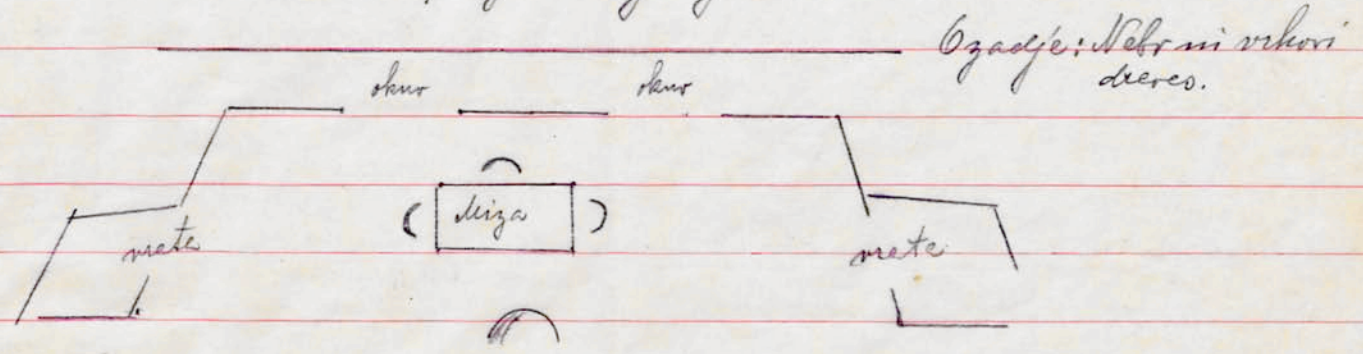 Ozadje: Nebo in vrhovi
dreves.
okno okno
Miza
vrata vrata